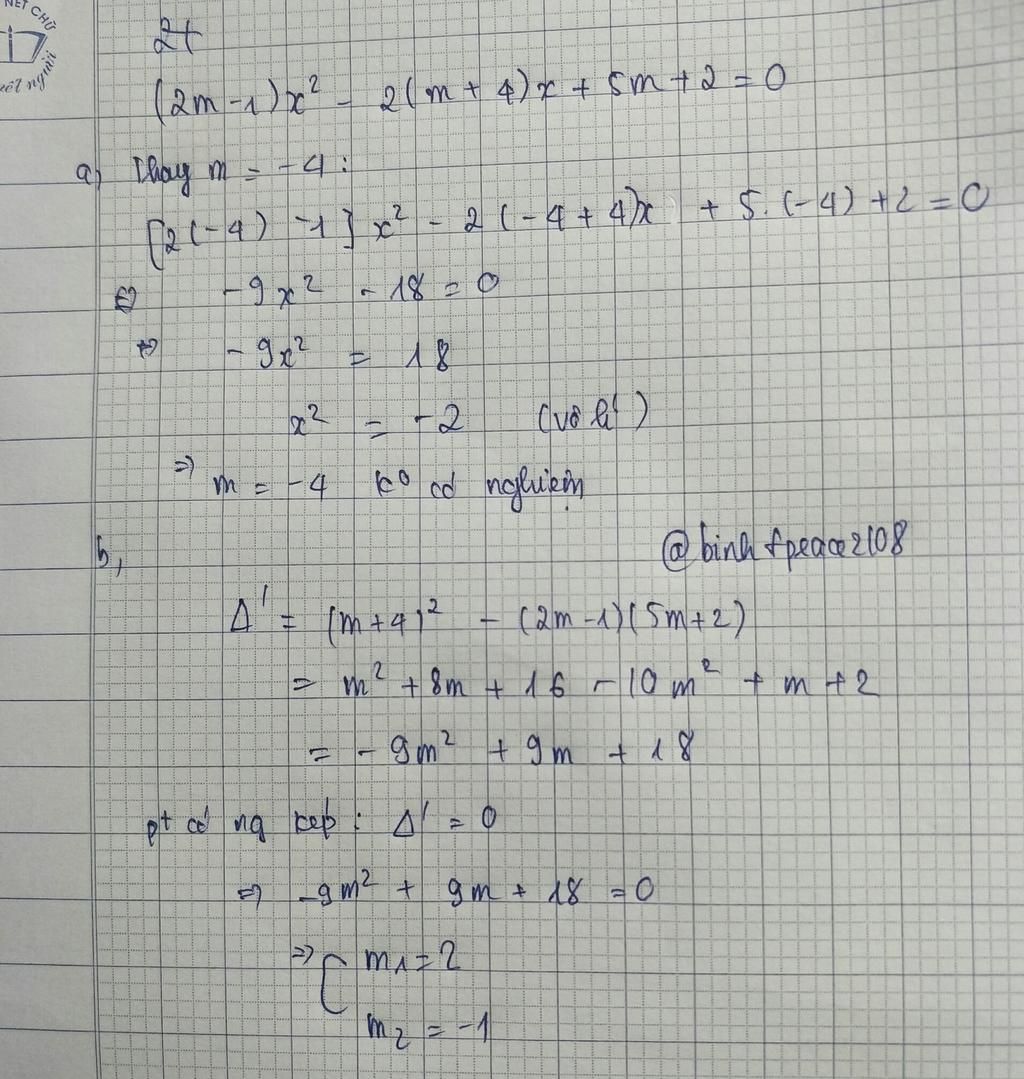 NÉT CHỮ
nết người
2+
(2m-1)x² - 2(m+4)x + 5m+2=0
a, Thay m = -4:
[2(-4) -1] x² - 2(-4+4)x + 5.(-4) +2 =0
⇔ -9x² -18 = 0
⇔ -9x² = 18
x² = -2 (vô lí)
=> m = -4 ko có nghiệm
b,
@binhfpeace2108
Δ' = (m+4)² - (2m-1)(5m+2)
= m² + 8m + 16 - 10m² + m + 2
= -9m² + 9m + 18
pt có ng kép: Δ' = 0
=> -9m² + 9m + 18 = 0
=> [ m1 = 2
m2 = -1